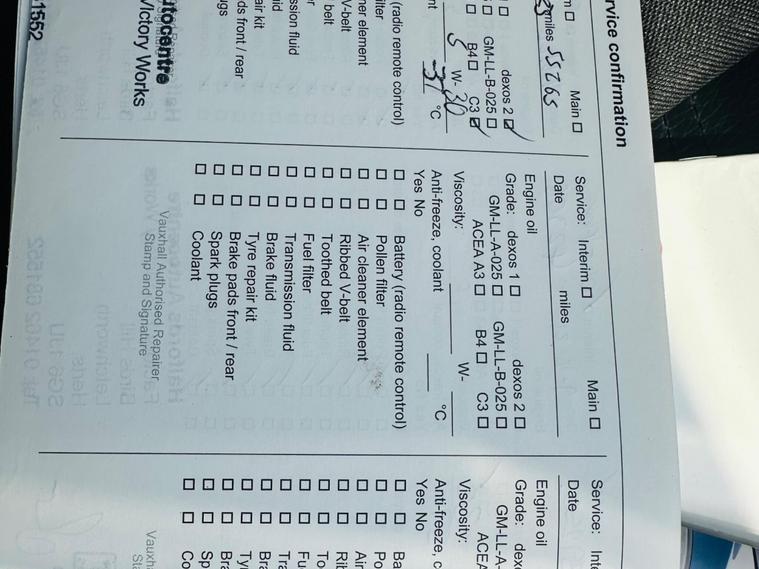 rvice confirmation
Main ☐
miles 55265
dexos 2 ☑
GM-LL-B-025 ☐
B4 ☐ C3 ☑
5 W- 30
-37 °C
(radio remote control)
filter
ner element
V-belt
belt
ssion fluid
air kit
ds front / rear
ugs
utocentre
Victory Works
1552
Service: Interim ☐ Main ☐
Date miles
Engine oil
Grade: dexos 1 ☐ dexos 2 ☐
GM-LL-A-025 ☐ GM-LL-B-025 ☐
ACEA A3 ☐ B4 ☐ C3 ☐
Viscosity: W-
Anti-freeze, coolant °C
Yes No
☐ ☐ Battery (radio remote control)
☐ ☐ Pollen filter
☐ ☐ Air cleaner element
☐ ☐ Ribbed V-belt
☐ ☐ Toothed belt
☐ ☐ Fuel filter
☐ ☐ Transmission fluid
☐ ☐ Brake fluid
☐ ☐ Tyre repair kit
☐ ☐ Brake pads front / rear
☐ ☐ Spark plugs
☐ ☐ Coolant
Vauxhall Authorised Repairer
Stamp and Signature
Service: Inte
Date
Engine oil
Grade: dexo
GM-LL-A-
ACEA
Viscosity:
Anti-freeze, c
Yes No
☐ ☐ Ba
☐ ☐ Po
☐ ☐ Air
☐ ☐ Rib
☐ ☐ To
☐ ☐ Fu
☐ ☐ Tra
☐ ☐ Bra
☐ ☐ Ty
☐ ☐ Bra
☐ ☐ Sp
☐ ☐ Co
Vauxh
Sta